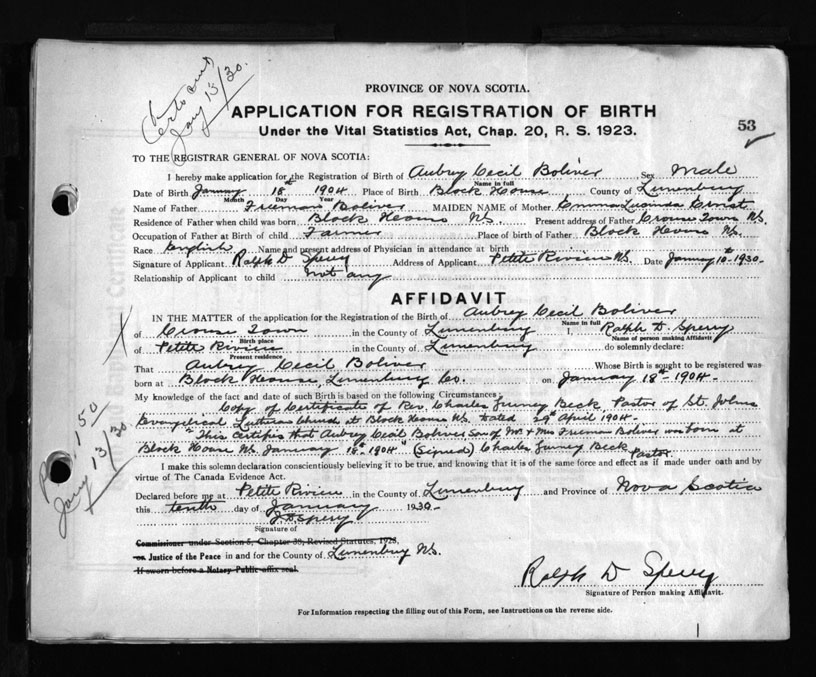 Jany 13/30.
PROVINCE OF NOVA SCOTIA.
APPLICATION FOR REGISTRATION OF BIRTH
53
Under the Vital Statistics Act, Chap. 20, R. S. 1923.
TO THE REGISTRAR GENERAL OF NOVA SCOTIA:
I hereby make application for the Registration of Birth of Aubrey Cecil Boliver Sex Male
Name in full
Date of Birth January 18th 1904 Place of Birth Block House County of Lunenburg
Month Day Year
Name of Father Freeman Boliver MAIDEN NAME of Mother Emma Lucinda Ernst
Residence of Father when child was born Block House NS. Present address of Father Crouse Town NS.
Occupation of Father at Birth of child Farmer Place of birth of Father Block House NS.
Race English Name and present address of Physician in attendance at birth
Signature of Applicant Ralph D Sperry Address of Applicant Petite Riviere NS. Date January 10th 1930.
Relationship of Applicant to child not any
AFFIDAVIT
IN THE MATTER of the application for the Registration of the Birth of Aubrey Cecil Boliver
Name in full
of Crouse Town in the County of Lunenburg I, Ralph D. Sperry
Birth place Name of person making Affidavit
of Petite Riviere in the County of Lunenburg do solemnly declare:
Present residence
That Aubrey Cecil Boliver Whose Birth is sought to be registered was
born at Block House, Lunenburg Co. on January 18th 1904-
My knowledge of the fact and date of such Birth is based on the following Circumstances
Copy of Certificate of Rev. Charles Beck Pastor of St. Johns
Evangelical Lutheran Church at Block House NS. dated 29th April 1904-
"This certifies that Aubrey Cecil Boliver Son of Mr & Mrs Freeman Boliver was born at
Block House NS. January 18th 1904 (Signed) Charles Beck
Pastor.
I make this solemn declaration conscientiously believing it to be true, and knowing that it is of the same force and effect as if made under oath and by
virtue of The Canada Evidence Act.
Declared before me at Petite Riviere in the County of Lunenburg and Province of Nova Scotia
this tenth day of January 1930-
Sperry
Signature of
Commissioner under Section 5, Chapter 38, Revised Statutes, 1923,
or Justice of the Peace in and for the County of Lunenburg NS.
If sworn before a Notary Public affix seal.
Ralph D Sperry
Signature of Person making Affidavit.
For Information respecting the filling out of this Form, see Instructions on the reverse side.
1.50
Jany 13/30